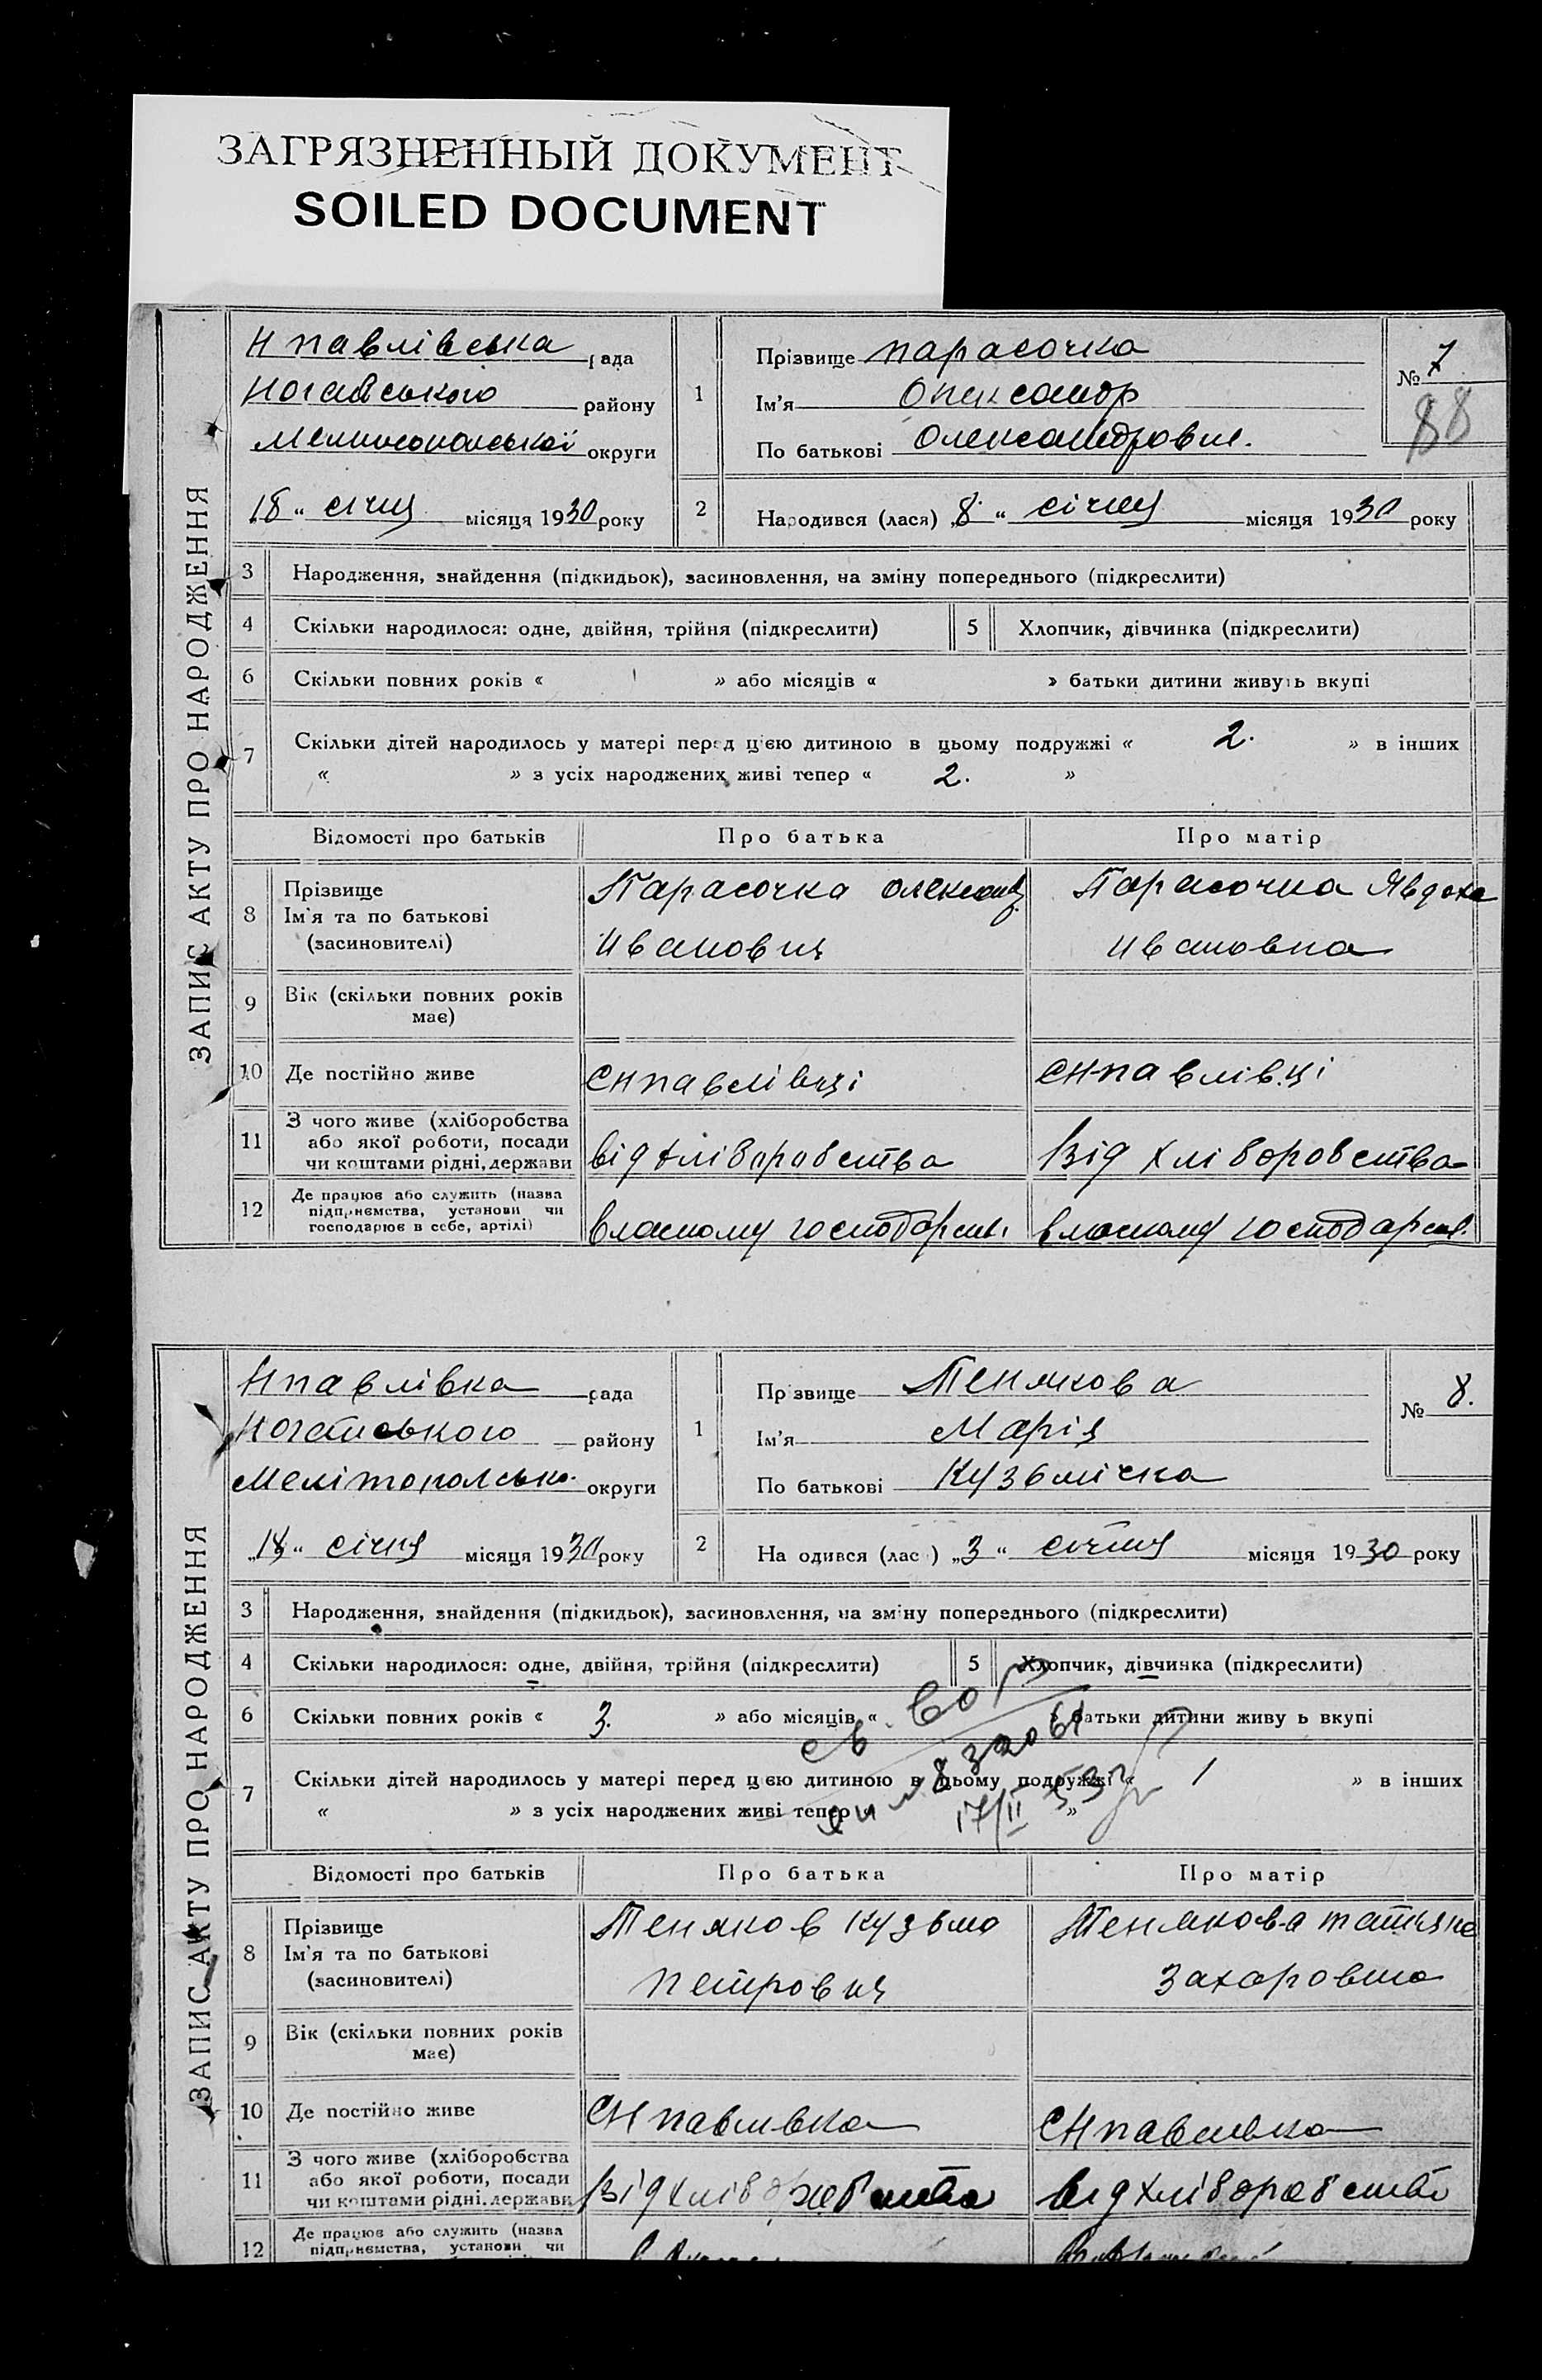 ЗАГРЯЗНЕННЫЙ ДОКУМЕНТ
SOILED DOCUMENT
ЗАПИС АКТУ ПРО НАРОДЖЕННЯ
Нпавлівська рада
Ногайського району
Мелитопольської округи
„18“ січня місяця 1930 року
1
Прізвище парасочка
Ім'я Олександр
По батькові Олександрович.
№ 7
88
2
Народився (лася) „8“ січня місяця 1930 року
3 Народження, знайдення (підкидьок), засиновлення, на зміну попереднього (підкреслити)
4 Скільки народилося: одне, двійня, трійня (підкреслити) 5 Хлопчик, дівчинка (підкреслити)
6 Скільки повних років « » або місяців « » батьки дитини живуть вкупі
7 Скільки дітей народилось у матері перед цією дитиною в цьому подружжі « 2. » в інших
« » з усіх народжених живі тепер « 2. »
Відомості про батьків Про батька Про матір
8 Прізвище
Ім'я та по батькові
(засиновителі)
Парасочка Олександ
Ивановия
Парасочка Явдоха
Ивановна
9 Вік (скільки повних років
має)
10 Де постійно живе СНпавлівці СНпавлівці
11 З чого живе (хліборобства
або якої роботи, посади
чи коштами рідні, держави
від хліборобства від хліборобства
12 Де працює або служить (назва
підприємства, установи чи
господарює в себе, артілі)
власному господарств. власному господарств.
ЗАПИС АКТУ ПРО НАРОДЖЕННЯ
Нпавлівка рада
Ногайського району
Мелітопольсько. округи
„18“ січня місяця 1930 року
1
Прізвище Тенякова
Ім'я Марія
По батькові Кузьмічна
№ 8.
2
На одився (лас ) „3“ січня місяця 1930 року
3 Народження, знайдення (підкидьок), засиновлення, на зміну попереднього (підкреслити)
4 Скільки народилося: одне, двійня, трійня (підкреслити) 5 Хлопчик, дівчинка (підкреслити)
6 Скільки повних років « 3. » або місяців « » батьки дитини живу ь вкупі
7 Скільки дітей народилось у матері перед цією дитиною в цьому подружжі « 1 » в інших
« » з усіх народжених живі тепер « »
17/II 53
Відомості про батьків Про батька Про матір
8 Прізвище
Ім'я та по батькові
(засиновителі)
Теняков Кузьма
Петровия
Тенякова татьяна
Захаровна
9 Вік (скільки повних років
має)
10 Де постійно живе СНпавливка СНпавливка
11 З чого живе (хліборобства
або якої роботи, посади
чи коштами рідні, держави
від хліборобства від хліборобства
12 Де працює або служить (назва
підприємства, установи чи